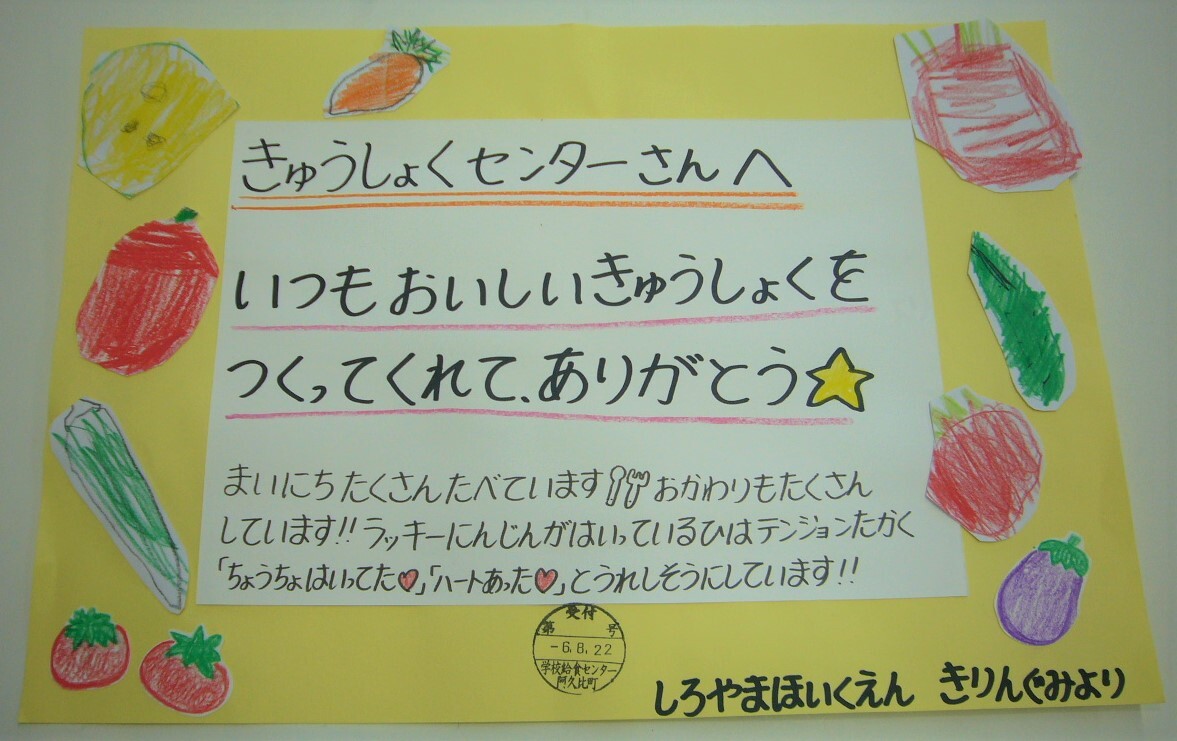 きゅうしょくセンターさんへ
いつもおいしいきゅうしょくを
つくってくれて、ありがとう
まいにちたくさんたべています おかわりもたくさん
しています!! ラッキーにんじんがはいっているひはテンションたかく
「ちょうちょはいってた♥」「ハートあった♥」とうれしそうにしています!!
受付
第 号
-6.8.22
学校給食センター
阿久比町
しろやまほいくえん きりんぐみより